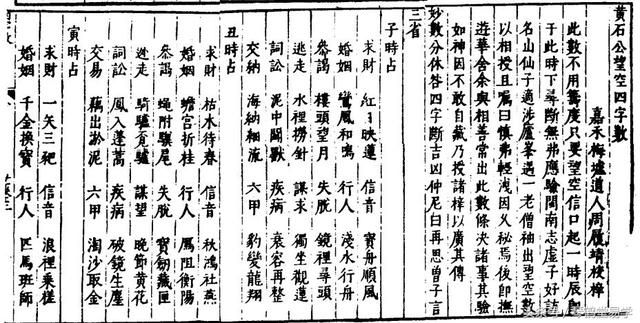 黃石公望空四字數
嘉禾梅墟道人周履靖校梓
此數不用籌度只要望空信口起一時辰即
于此時下尋斷無弗應驗閩南志虛子好訪
名山仙子適涉廬峯遇一老僧袖出望空數
以相授且囑曰慎弗輕淺因乂祕焉後即撫
遊華舍余與相善常出此數條决諸事其驗
如神因不敢自藏乃授諸梓以廣其傳
妙數分休咎四字斷吉凶仲尼曰再思曾子言
三省
子時占
求財 紅日映蓮 信音 寳舟順風
婚姻 鸞鳳和鳴 行人 淺水行舟
叅謁 樓頭望月 失脫 鏡裡尋頭
逃走 水裡撈針 謀求 獨坐觀蓮
詞訟 泥中鬭獸 疾病 衰容再整
交納 海納細流 六甲 豹變龍翔
丑時占
求財 枯木待春 信音 秋鴻社燕
婚姻 蟾宫折桂 行人 鴈阻衡陽
叅謁 蠅附驥尾 失脫 寳劒藏匣
逃走 騎驢覓驢 謀望 晚節黃花
詞訟 鳳入蓬蒿 疾病 破鏡生塵
交易 藕出淤泥 六甲 淘沙取金
寅時占
求財 一矢三𥝧 信音 浪裡乗槎
婚姻 千金換寳 行人 匹馬班師